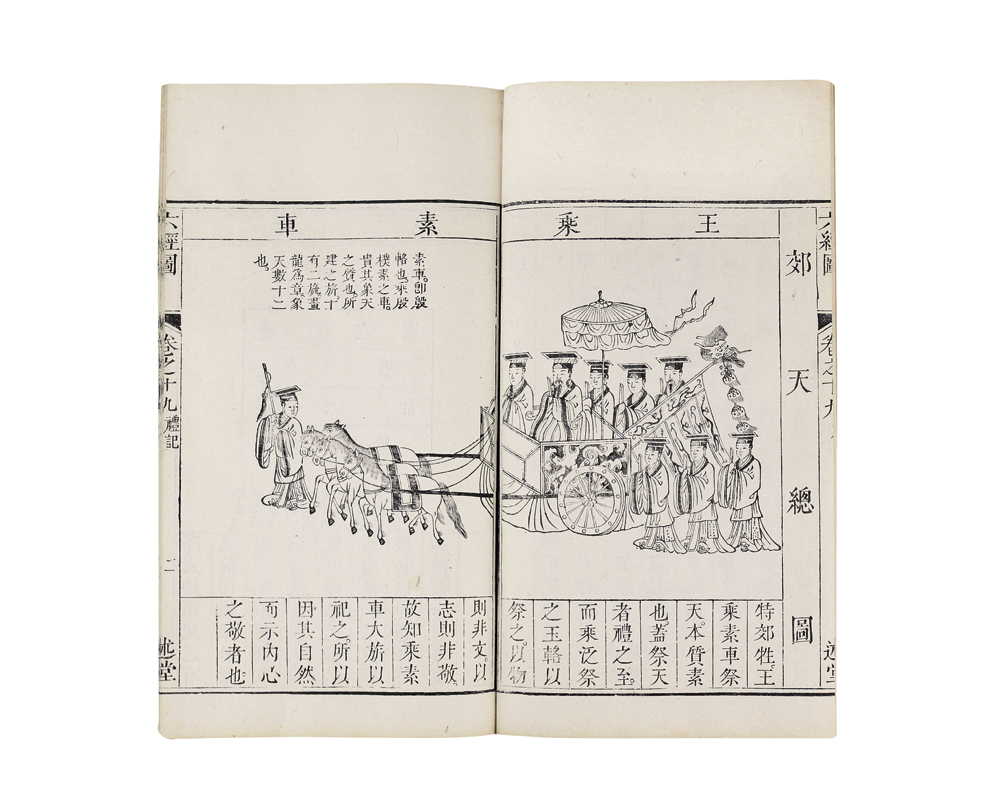 六經圖
卷之十九
述堂
郊天總圖
王乘素車
素車。即殷
輅也。乘殷
樸素之車。
貴其象天
之質也。所
建之旂。十
有二旒。畫
龍爲章。象
天數十二
也。
特郊牲。王
乘素車祭
天。本質素
也。蓋祭天
者禮之至。
而乘泛祭
之王輅以
祭之。以物
則非文。以
志則非敬
故知乘素
車大旂以
祀之。所以
因其自然
而示內心
之敬者也
六經圖
卷之十九 禮記
二
述堂